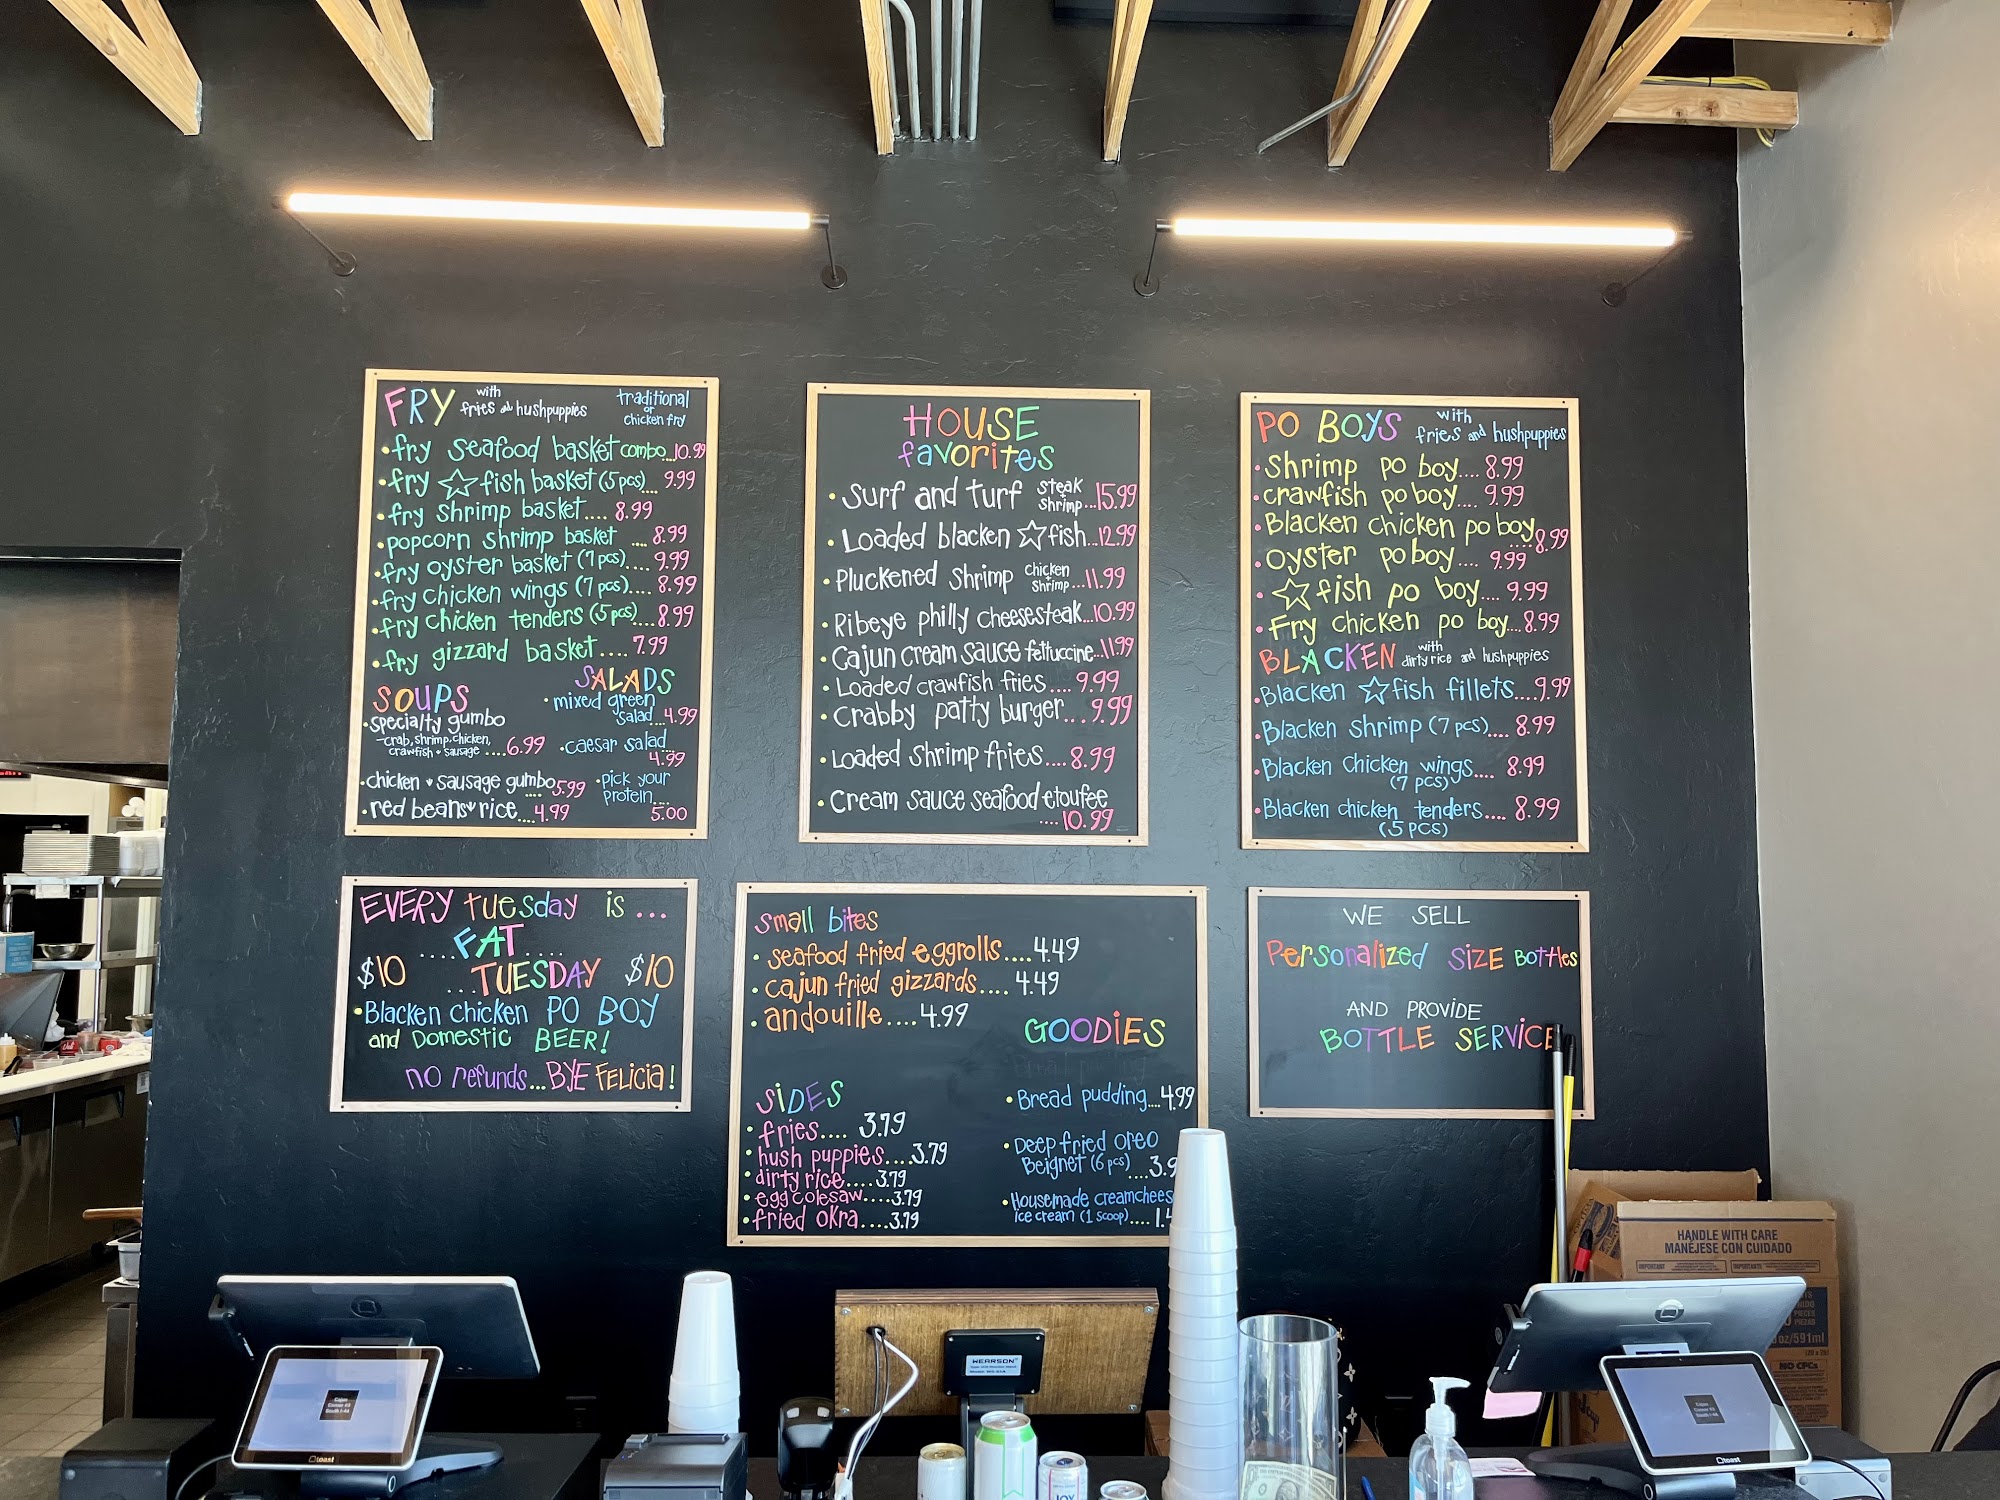 FRY with fries and hushpuppies traditional or chicken fry
• fry seafood basket combo...10.99
• fry ☆ fish basket (5 pcs).... 9.99
• fry shrimp basket.... 8.99
• popcorn shrimp basket .... 8.99
• fry oyster basket (7 pcs).... 9.99
• fry chicken wings (7 pcs).... 8.99
• fry chicken tenders (5 pcs).... 8.99
• fry gizzard basket.... 7.99
SOUPS
• specialty gumbo
-crab, shrimp, chicken,
crawfish + sausage ....6.99
• chicken + sausage gumbo
....5.99
• red beans + rice....4.99
SALADS
• mixed green
salad...4.99
• caesar salad...
4.99
• pick your
protein....
5.00
HOUSE
favorites
• Surf and turf steak + shrimp...15.99
• Loaded blacken ☆ fish...12.99
• Pluckened shrimp chicken + shrimp...11.99
• Ribeye philly cheesesteak...10.99
• Cajun cream sauce fettuccine...11.99
• Loaded crawfish fries.... 9.99
• Crabby patty burger... 9.99
• Loaded shrimp fries.... 8.99
• Cream sauce seafood etoufee
....10.99
PO BOYS with fries and hushpuppies
• Shrimp po boy.... 8.99
• crawfish po boy.... 9.99
• Blacken chicken po boy
....8.99
• Oyster po boy.... 9.99
• ☆ fish po boy.... 9.99
• Fry chicken po boy....8.99
BLACKEN with dirty rice and hushpuppies
• Blacken ☆ fish fillets....9.99
• Blacken shrimp (7 pcs).... 8.99
• Blacken chicken wings.... 8.99
(7 pcs)
• Blacken chicken tenders.... 8.99
(5 pcs)
EVERY tuesday is ...
....FAT....
$10 ...TUESDAY $10
• Blacken chicken PO BOY
and Domestic BEER!
no refunds...BYE FELICIA!
small bites
• seafood fried eggrolls....4.49
• cajun fried gizzards.... 4.49
• andouille....4.99
SIDES
• fries.... 3.79
• hush puppies....3.79
• dirty rice....3.79
• egg colesaw....3.79
• fried okra....3.79
GOODIES
• Bread pudding....4.99
• Deep fried oreo
Beignet (6 pcs)
....3.9
• Housemade creamchees
ice cream (1 scoop).... 1.4
WE SELL
Personalized SIZE BOTTLES
AND PROVIDE
BOTTLE SERVICE
HANDLE WITH CARE
MANÉJESE CON CUIDADO
IMPORTANT IMPORTANTE
oz/591ml
NO CFCs
WEARSON
Cajun
Corner #3
South I-44
toast
Cajun
Corner #3
South I-44
toast
JOY